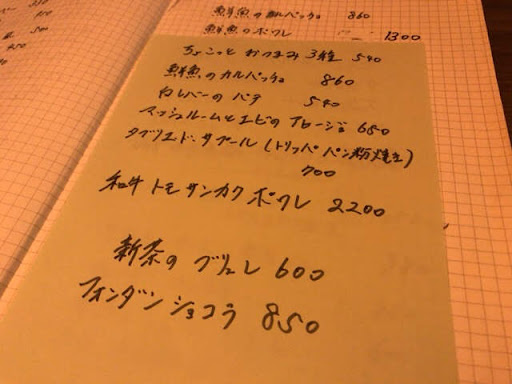 鮮魚のカルパッチョ 860
鮮魚のポワレ 1300
ちょこっと おつまみ 3種 540
鮮魚のカルパッチョ 860
白レバーのパテ 540
マッシュルームとエビのアヒージョ 650
タブリエ・ド・サプール (トリッパ パン粉焼き)
700
和牛 トモサンカク ポワレ 2200
新茶の ブリュレ 600
フォンダン ショコラ 850